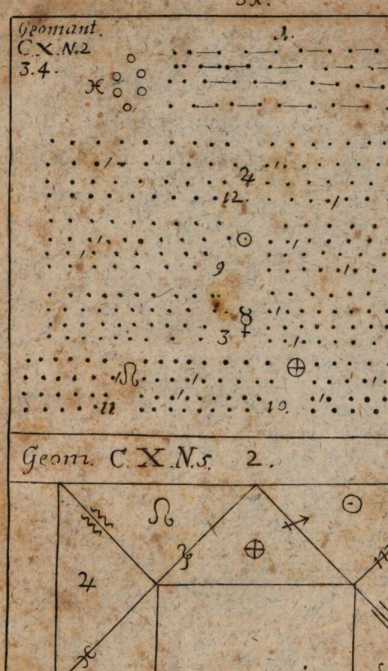 Geomant.
C X. N.2
3.4.
1.
♓
♃
12.
☉
9
☿
3
♌
⊕
11
10.
Geom. C. X. N.5. 2.
♒ ♌ ♐ ☉
♑ ⊕
♃
♓